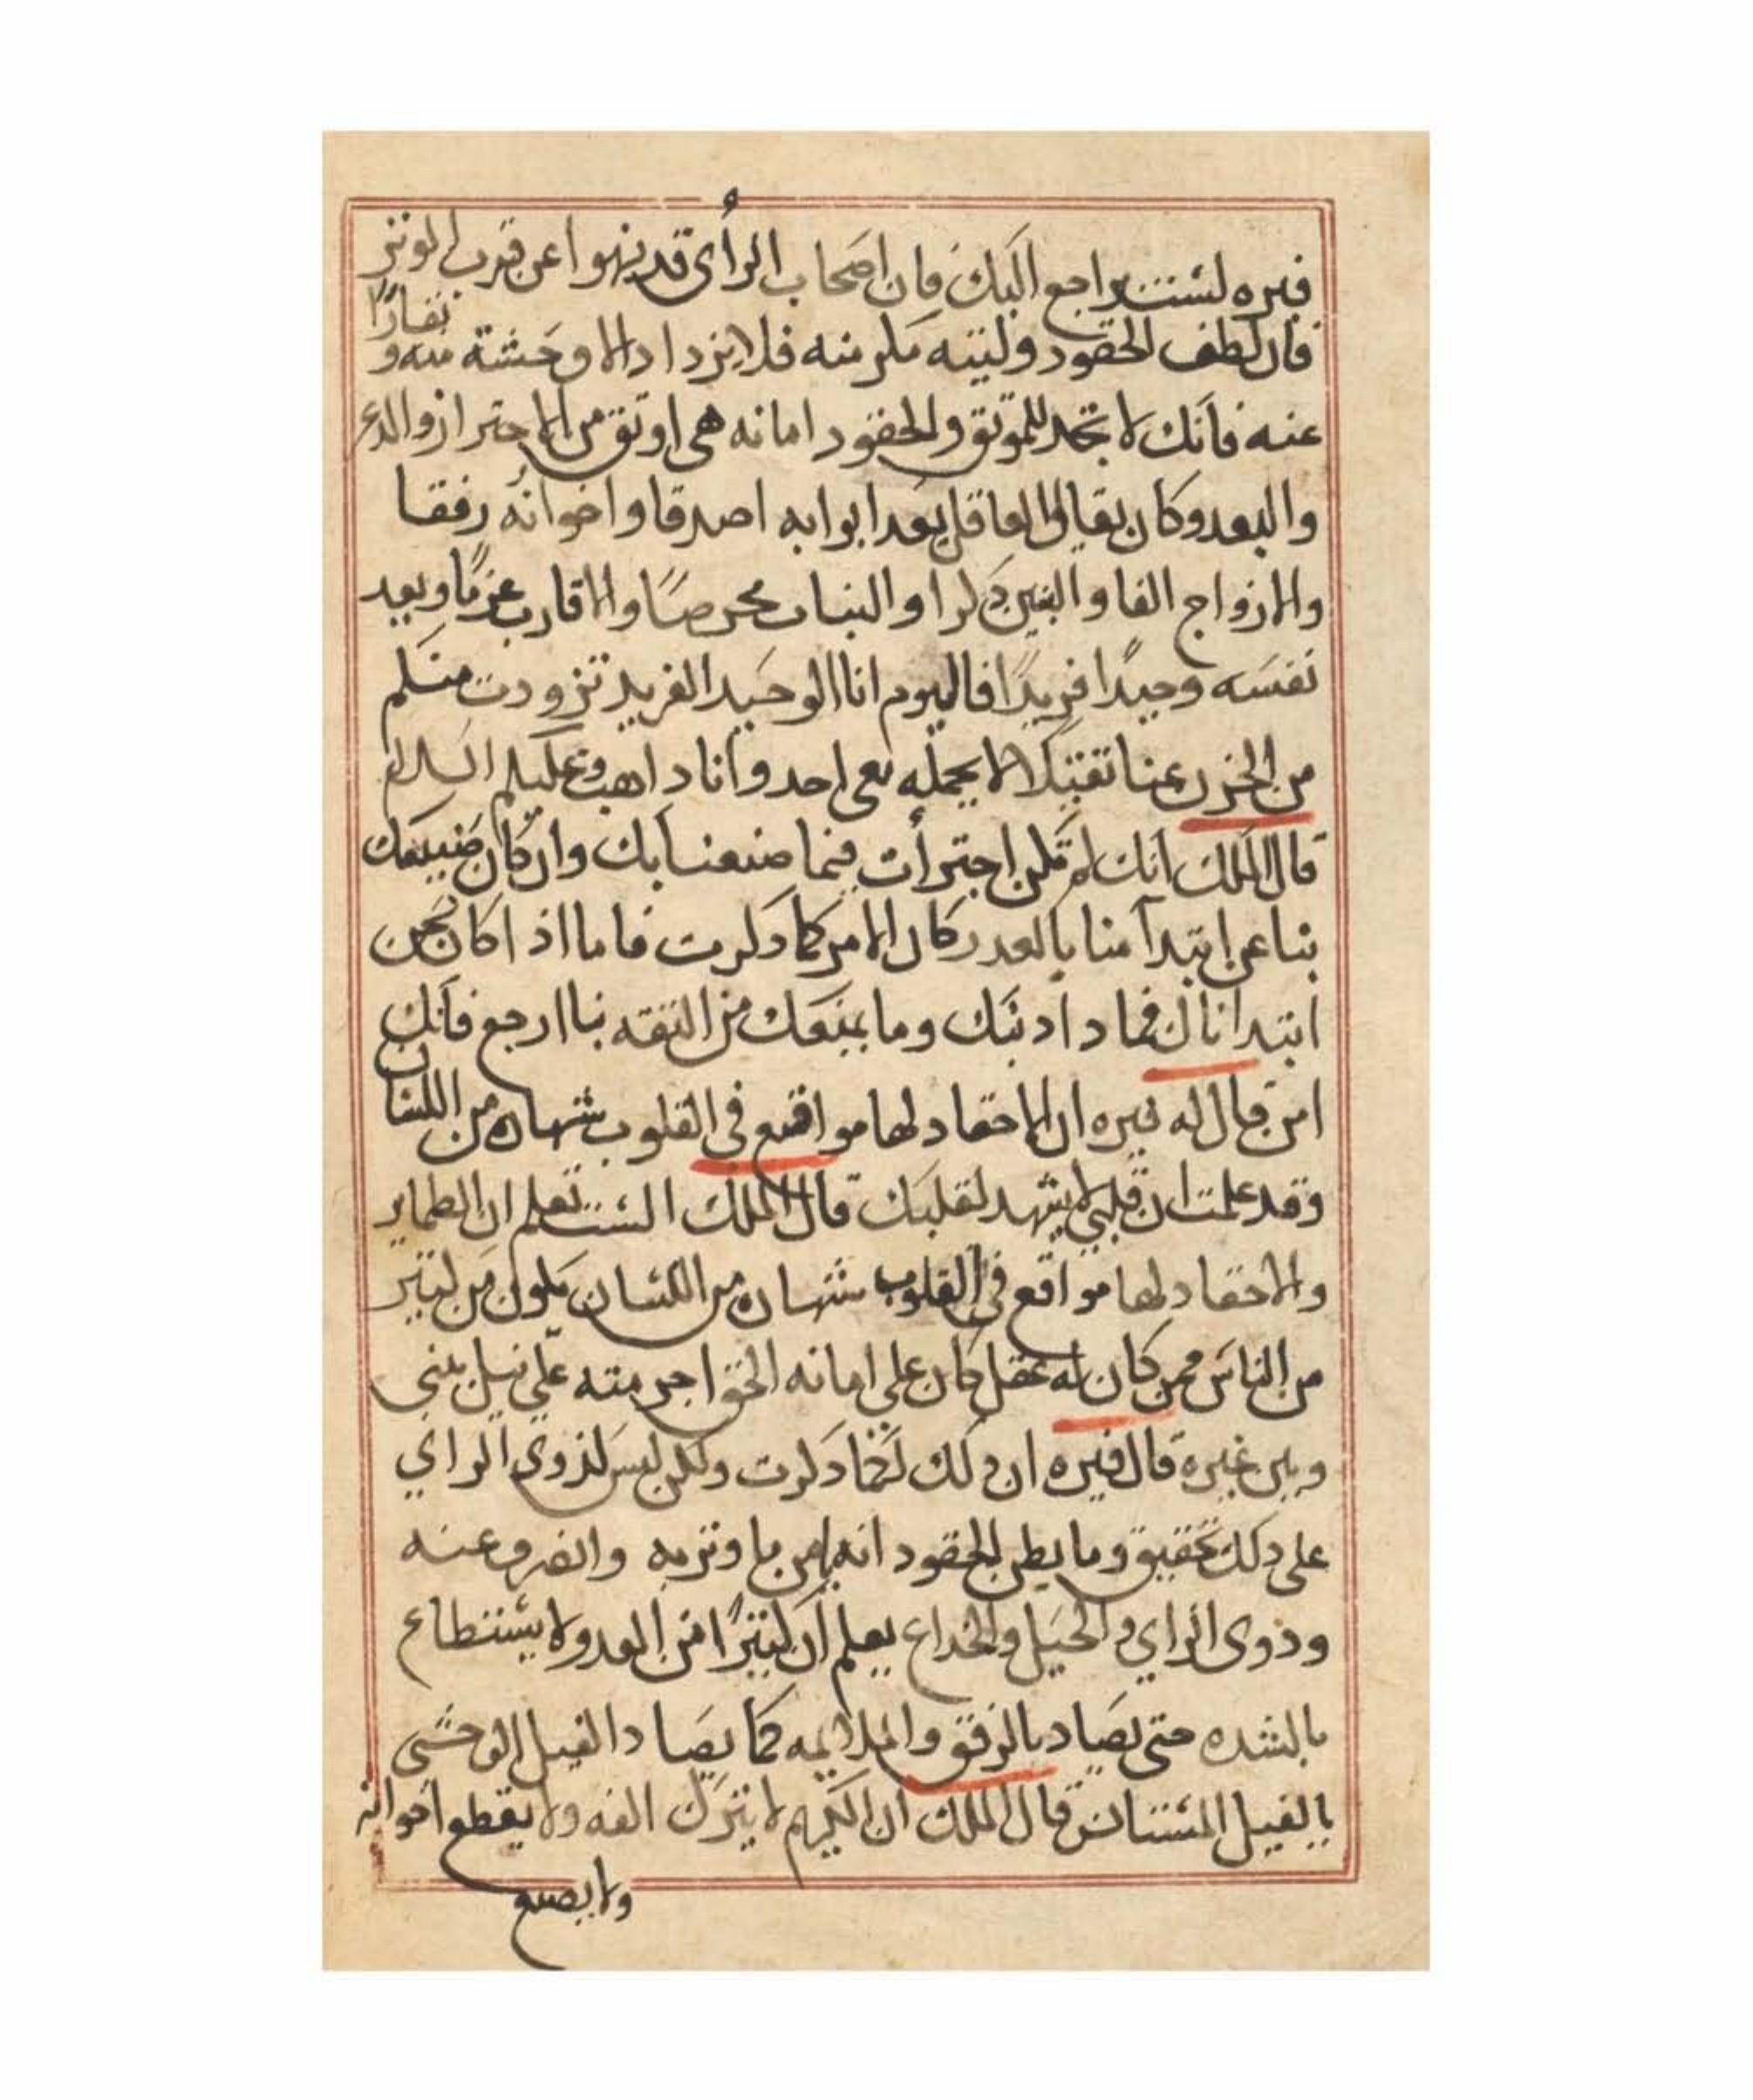 فنزه لست براجع اليك فان اصحاب الرأى قد نهوا عن قرب الموتر
فان لطف الحقود ولينه مكر منه فلا يزداد الا وحشة منه ونفارًا
عنه فانك لا تجد للموتق والحقود امانه هى اوتق من الاحتراز والدع
والبعد وكان يقال ان العاقل يعد ابوابه اصدقا واخوانه رفقا
والازواج الفا والبنين دكرا والبنات محرصًا والاقارب عزمًا ويعد
نفسه وحيدًا فريدًا فاليوم انا الوحيد الفريد تزودت منكم
من الحزن عنا تقيلا لا يحمله معى احد وانا داهب وعليكم السلام
قال الملك انك لم تكن اجترأت فيما صنعنا بك وان كان صنيعك
بنا عن ابتدآ منا بالعدر كان الامر كما دكرت فاما اذا كان نحن
ابتدانا لك فما دا دنبك وما يمنعك من التقه بنا ارجع فانك
امن قال له فنزه ان الاحقاد لها مواقع فى القلوب شهاده من اللسان
وقد علمت ان قلبي لا يشهد لقلبك قال الملك الست تعلم ان الطماير
والاحقاد لها مواقع فى القلوب شهاده من اللسان يكون من كتير
من الناس فمن كان له عقل كان على اماته الحقد احر منه على نيل بينى
وبين غيره قال فنزه ان دلك لكما دكرت ولكن ليس لذوى الراي
على دلك تحقيق وما يظن الحقود انه يامن ما وتر به وانصرف عنه
وذوى الراي والحيل والخداع يعلم ان كتيرًا من العدو لا يستطاع
بالشده حتى يصاد بالرفق والملايمه كما يصاد الفيل الوحشى
بالفيل المستانس قال الملك ان الكريم لا يترك الفه ولا يقطع اخوانه
ولا يصع